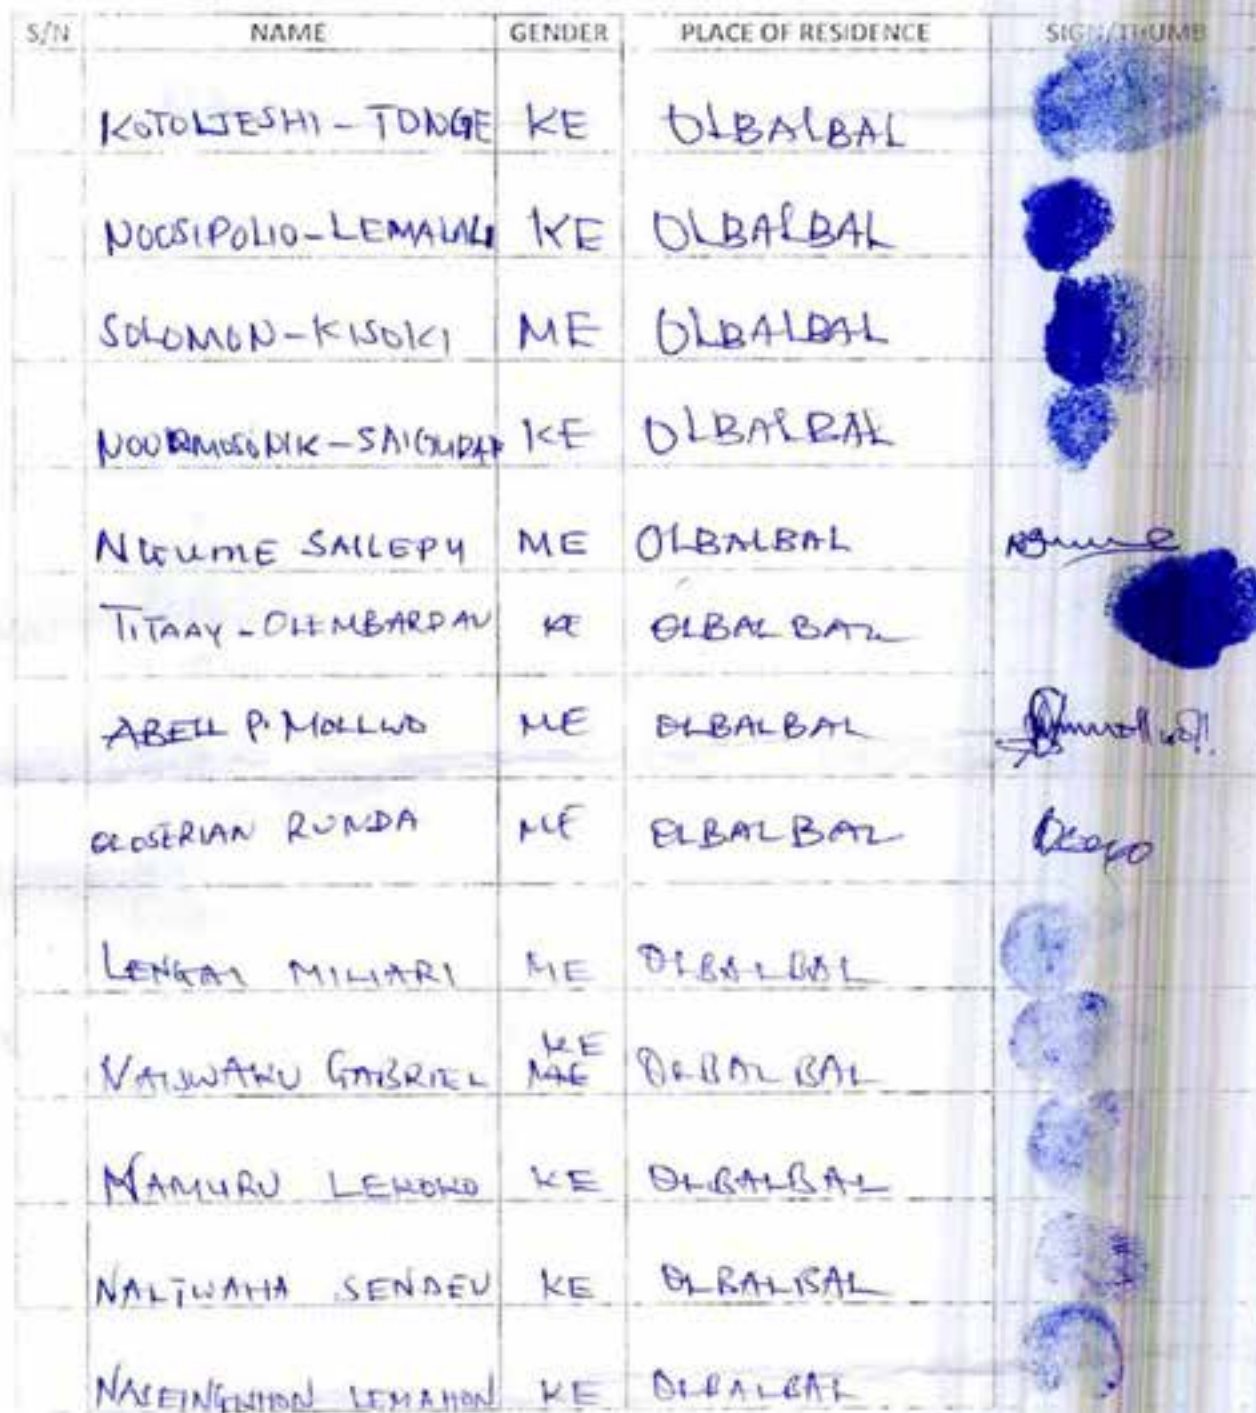 S/N NAME GENDER PLACE OF RESIDENCE SIGN/THUMB
KOTOLJESHI - TONGE KE OLBALBAL
NOOSIPOLIO - LEMALALI KE OLBALBAL
SOLOMON - KISOKI ME OLBALBAL
KE OLBALBAL
SAILEPY ME OLBALBAL
TITAAY - OLEMBARDAU KE OLBALBAL
ABELL P. MOLLWO ME OLBALBAL
OLOSERIAN RUNDA ME OLBALBAL
LENGAI MILIARI ME OLBALBAL
KE
GABRIEL OLBALBAL
NAMURU LEKOKO KE OLBALBAL
SENDEU KE OLBALBAL
KE OLBALBAL